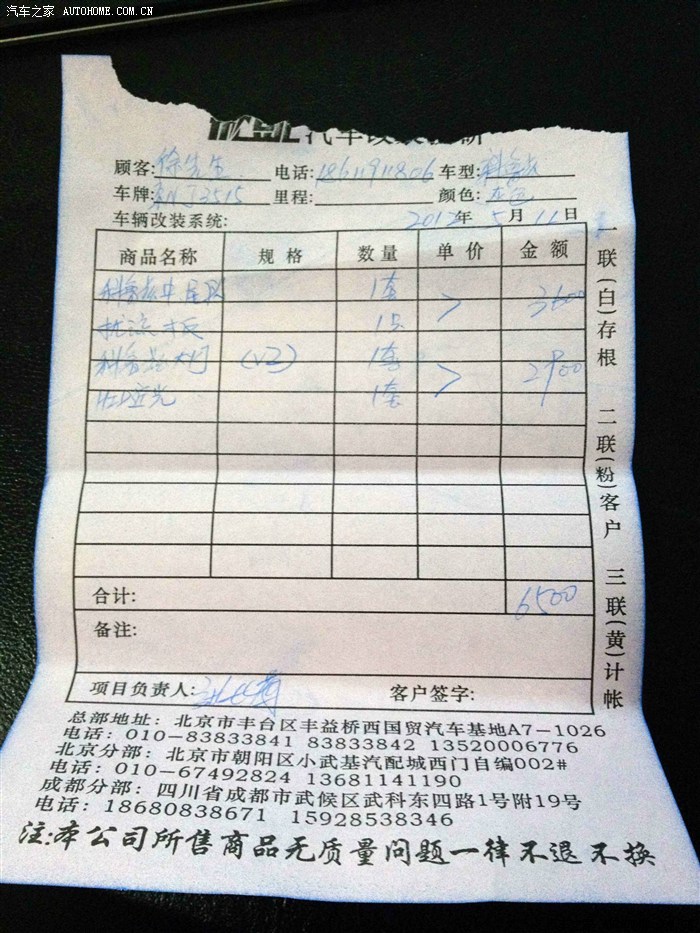 汽车之家 AUTOHOME.COM.CN
汽车改装
顾客:徐先生 电话:18611911806 车型:科鲁兹
车牌:京NJ3515 里程: 颜色:灰色
车辆改装系统: 2012年5月11日
商品名称 规格 数量 单价 金额
科鲁兹中尾段 1套 3600
扰流板 1只
科鲁兹大灯 (V2) 1套 2900
哑光 1套
合计: 6500
备注:
项目负责人: 客户签字:
一联(白)存根 二联(粉)客户 三联(黄)计帐
总部地址:北京市丰台区丰益桥西国贸汽车基地A7-1026
电话:010-83833841 83833842 13520006776
北京分部:北京市朝阳区小武基汽配城西门自编002#
电话:010-67492824 13681141190
成都分部:四川省成都市武候区武科东四路1号附19号
电话:18680838671 15928538346
注:本公司所售商品无质量问题一律不退不换